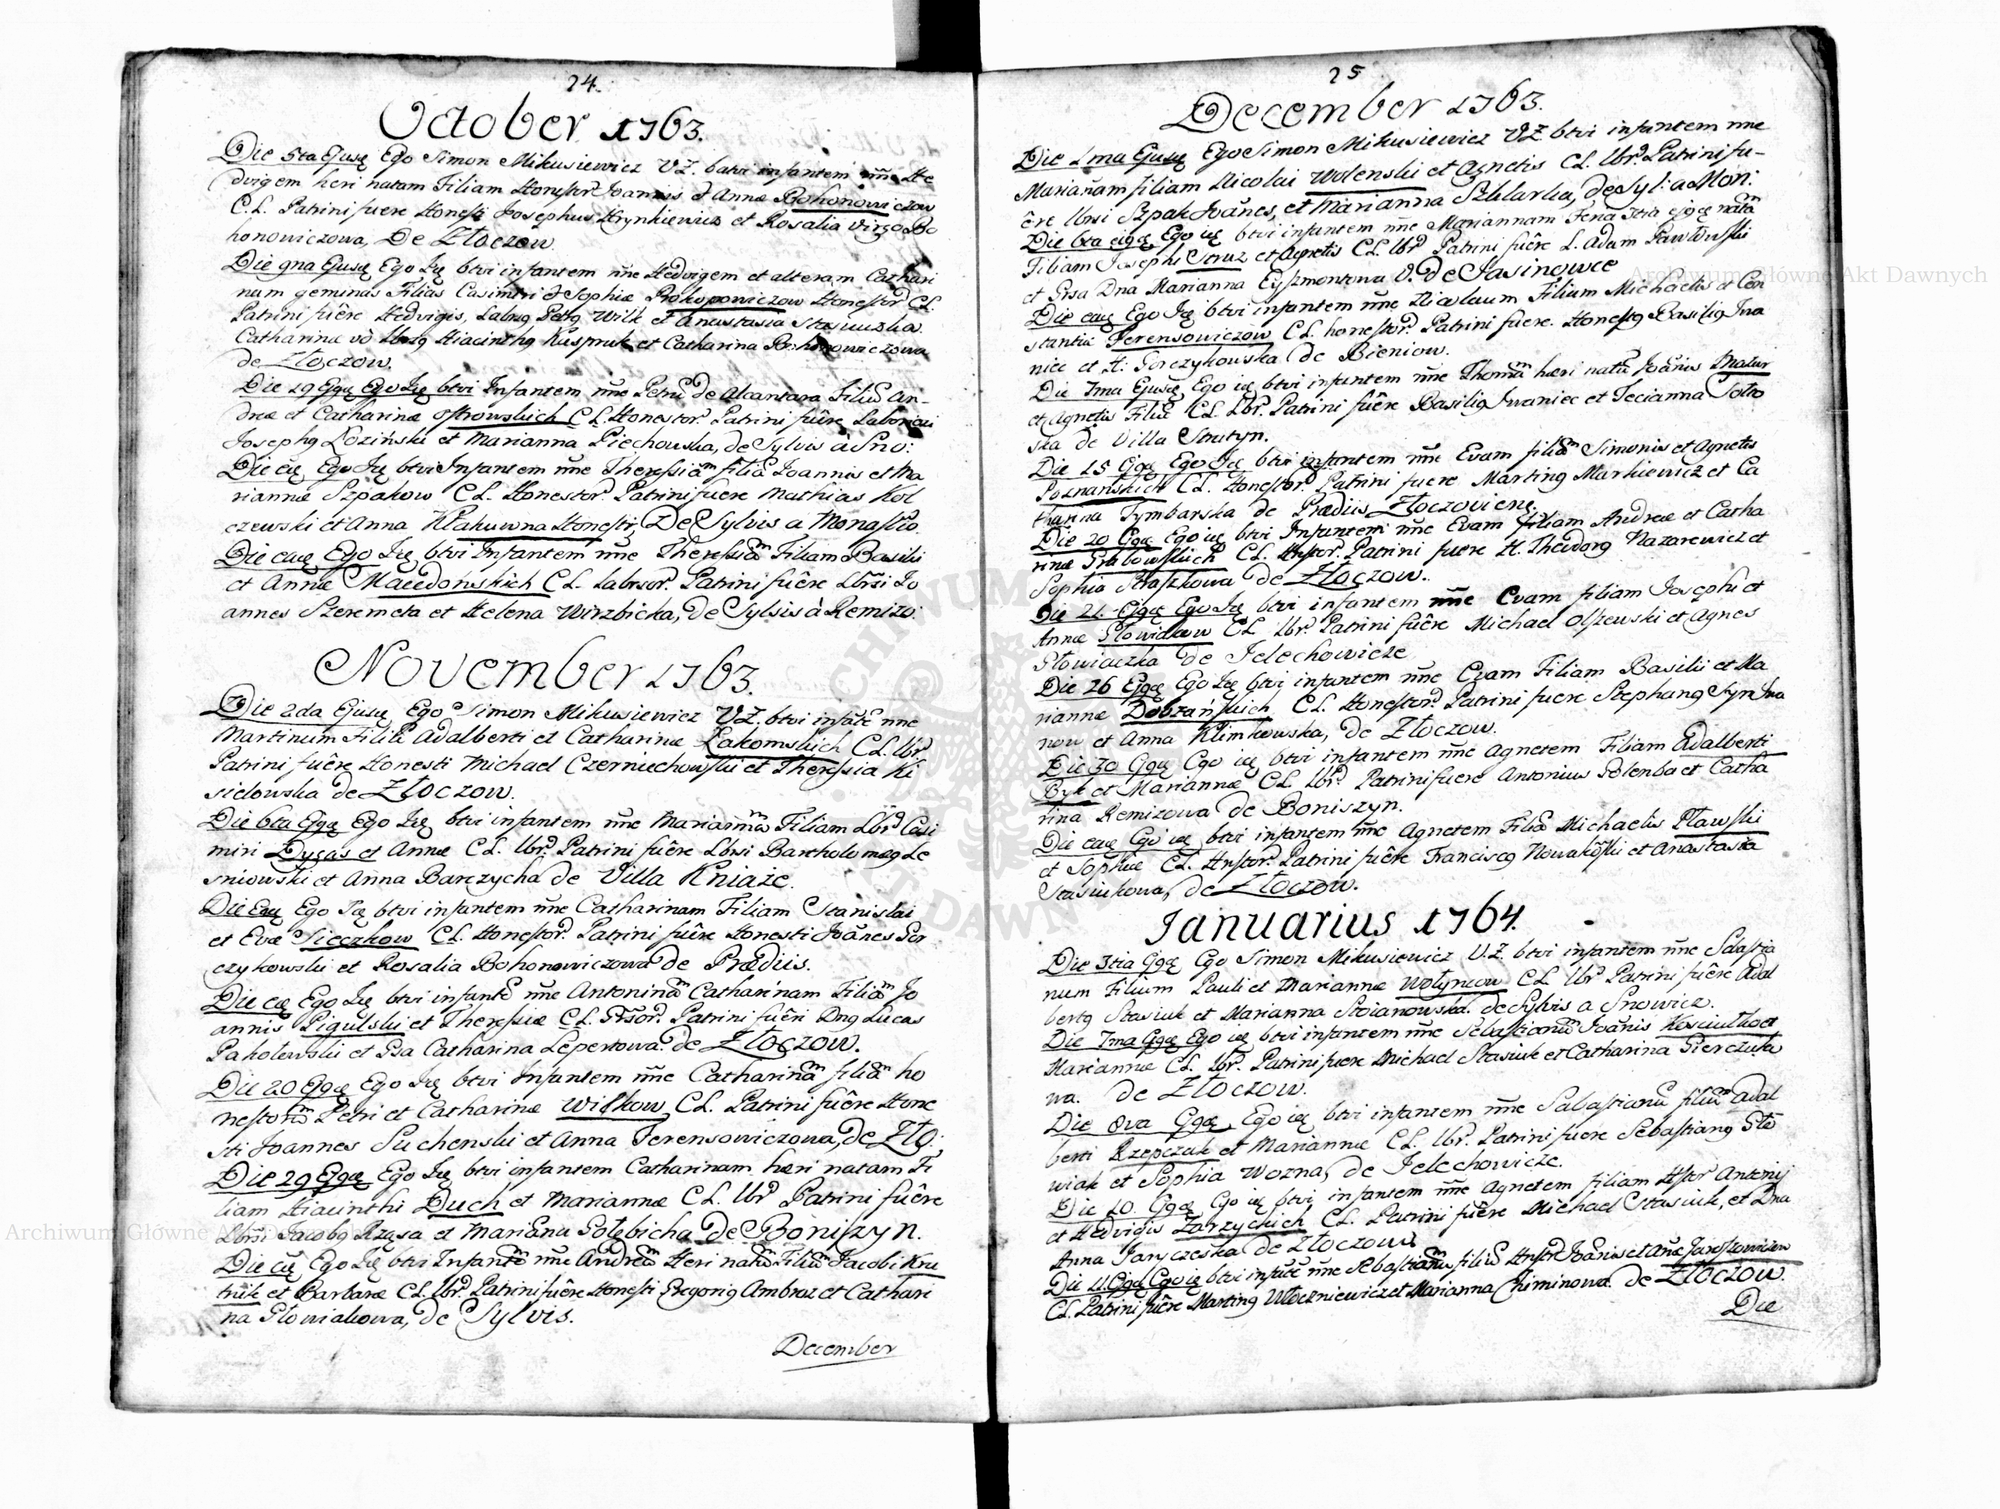 24.
October 1763.
Die 5ta Ejusę Ego Simon Mikusiewicz VZ. batvi infantem nñe He
dvigem heri natam Filiam Honestor. Joannis & Annæ Bohonowiczow
C.L. Patrini fuere Honesti Josephus Hrynkiewicz et Rosalia Virgo Bo
honowiczowa, De Złoczow.
Die 9na Ejusę Ego Ię btvi infantem nñe Hedvigem et alteram Cathari
nam geminas Filias Casimiri & Sophiæ Prokopowiczow Honestor CL.
Patrini fuêre Hedvigis, Labrg Petrg Wilk et Anastasia Stasiuczka
Catharinæ vō Hiacinthg Kuspruk et Catharina Bohonowiczowa
de Złoczow.
Die 19 Ejgę Ego Ię btvi Infantem nñe Petrū de Alcantara Filiū An-
dreæ et Catharinæ Ostrowskich CL. Honestor. Patrini fuêre Laboriosi
Josephg Łozinski et Marianna Piechowska, de Sylvis à Sno:
Die eię Ego Ię btvi Infantem nñe Theressiam filiā Joannis et Ma
riannæ Szpakow CL. Honestor. Patrini fuere Mathias Kol
czewski et Anna Kłakuwna Honesti, De Sylvis a Monastio.
Die eaę Ego Ię btvi Infantem nñe Theressiam Filiam Basilii
et Annæ Macedońskich CL. Labrsor. Patrini fuêre Lbrsi Jo
annes Szeremeta et Helena Wirzbicka, de Sylsis à Remizo:
November 1763.
Die 2da Ejusę Ego Simon Mikusiewicz VZ. btvi infatē nñe
Martinum Filiū Adalberti et Catharinæ Łakomskich CL. lbr
Patrini fuêre Honesti Michael Czerniechowski et Theressia Ki
sielowska de Złoczow.
Die 6ta Ejgę Ego Ię btvi infantem nñe Mariannam Filiam Lbr Casi
miri Dygas et Annæ CL. lbr. Patrini fuêre Lbrsi Bartholomæg Le
sniowski et Anna Barczycha de Villa Kniaże.
Die Eaę Ego Ię btvi infantem nñe Catharinam Filiam Stanislai
et Evæ Sieczkow CL. Honestor. Patrini fuêre Honesti Joānes Gor
czykowski et Rosalia Bohonowiczowa de Prædiis.
Die eię Ego Ię btvi infantē nñe Antoninam Catharinam Filiam Jo
annis Pigulski et Theressiæ CL. Patrini fuêri Dng Lucas
Pakolewski et Gsa Catharina Lepertowa de Złoczow.
Die 20 Ejgę Ego Ię btvi Infantem nñe Catharinam filiam ho
nestorum Petri et Catharinæ Wilkow CL. Patrini fuêre Hone
sti Joannes Suchenski et Anna Terensowiczowa, de Zło:
Die 29 Ejgę Ego Ię btvi infantem Catharinam hæri natam Fi
liam Hiacinthi Duch et Mariannæ CL. lbr. Patrini fuêre
Lbrsi Jacobg Rząsa et Mariāna Gołębicha de Boniszyn.
Die eię Ego Ię btvi Infantē nñe Andreā Heri natū Filiū Jacobi Kru
truk et Barbaræ CL. lbr. Patrini fuêre Honesti Gregorig Ambroz et Cathari
na Głowiakowa, de Sylvis.
December
25
December 1763.
Die 1ma Ejusę Ego Simon Mikusiewicz VZ. btvi infantem nñe
Mariañam filiam Nicolai Wolenski et Agnetis CL. lbr. Patrini fu-
êre lbrsi Szpak Joānes, et Marianna Szklarka, de Syl: a Mon:
Die 6ta eigę Ego ię btvi infantem nñe Mariannam Feria 3tia ejgę natā
Filiam Josephi Struz et Agnetis CL. lbr. Patrini fuêre L. Adam Pawłowski
et Grsa Dna Marianna Eyszmontowa V. de Jasinowce
Die eaę Ego Ię btvi infantem nñe Nicolaum Filium Michaelis et Con
stantiæ Terensowiczow CL. honestor. Patrini fuere Honestg Basilig Iwa
niec et H: Gorczykowska de Bieniow.
Die 7ma Ejusę Ego ię btvi infantem nñe Thomam hæri natū Joānis Mazur
et Agnetis Filiū CL. Lbr. Patrini fuêre Basilig Iwaniec et Tecianna Solto
ska de Villa Strutyn.
Die 15 Ejgę Ego Ię btvi infantem nñe Evam filiam Simonis et Agnetis
Poznańskich CL. Honestor. Patrini fuere Marting Markiewicz et Ca
tharina Tymbarska de Prædiis Złoczoviens.
Die 20 Ejgę Ego ię btvi Infantem nñe Evam Filiam Andreæ et Catha
rinæ Grabowskich CL. Hnstor. Patrini fuere H. Theodorg Nazarewicz et
Sophia Straszkowa de Złoczow.
Die 21. Ejgę Ego Ię btvi infantem nñe Evam filiam Josephi et
Annæ Głowiakow CL lbr. Patrini fuêre Michael Olszewski et Agnes
Głowiaczka de Jelechowicze
Die 26 Ejgę Ego Ię btvi infantem nñe Evam Filiam Basilii et Ma
riannæ Dobrzańskich CL. Honestor. Patrini fuere Stephang Syn Iwa
now et Anna Klimkowska, de Złoczow.
Die 30 Gjgę Ego ię btvi infantem nñe Agnetem Filiam Adalberti
Byk et Mariannæ CL lbr. Patrini fuere Antonius Golemba et Catha
rina Remizowa de Boniszyn.
Die eaę Ego ię btvi infantem nñe Agnetem Filiā Michaelis Pławski
et Sophiæ CL. Hnstor. Patrini fuêre Franciscg Nowakowski et Anastasia
Stasiukowa, de Złoczow.
Ianuarius 1764.
Die 3tia Gjgę Ego Simon Mikusiewicz V.Z. btvi infantem nñe Sebastia
num Filium Pauli et Mariannæ Wołyncow CL lbr Patrini fuêre Adal
bertg Stasiuk et Marianna Stoianowska de Sylvis a Snowicz.
Die 7ma Gjgę Ego ię btvi infantem nñe Sebastianū Joānis Kosciutko et
Mariannæ CL. lbr. Patrini fuere Michael Stasiuk et Catharina Pierczuko
wa. de Złoczow.
Die 8va Gjgę Ego ię btvi infantem nñe Sabastianū filiū Adal
berti Rzepczak et Mariannæ CL. lbr. Patrini fuere Sebastiang Gło
wiak et Sophia Wozna, de Jelechowicze.
Die 10. Gjgę Ego ię btvi infantem nñe Agnetem filiam Hstor Antonij
et Hedvigis Zarzyckich CL. Patrini fuêre Michael Stasiuk, et Dna
Anna Janczeska de Złoczow
Die 11 Ejgę Ego ię btvi infatē nñe Sebastianū filiū Hnstor Joānis et Añæ Jaroszowiczow
CL. Patrini fuêre Marting Włoczniewicz et Marianna Chiminowa. de Złoczow.
Die
Archiwum Główne Akt Dawnych